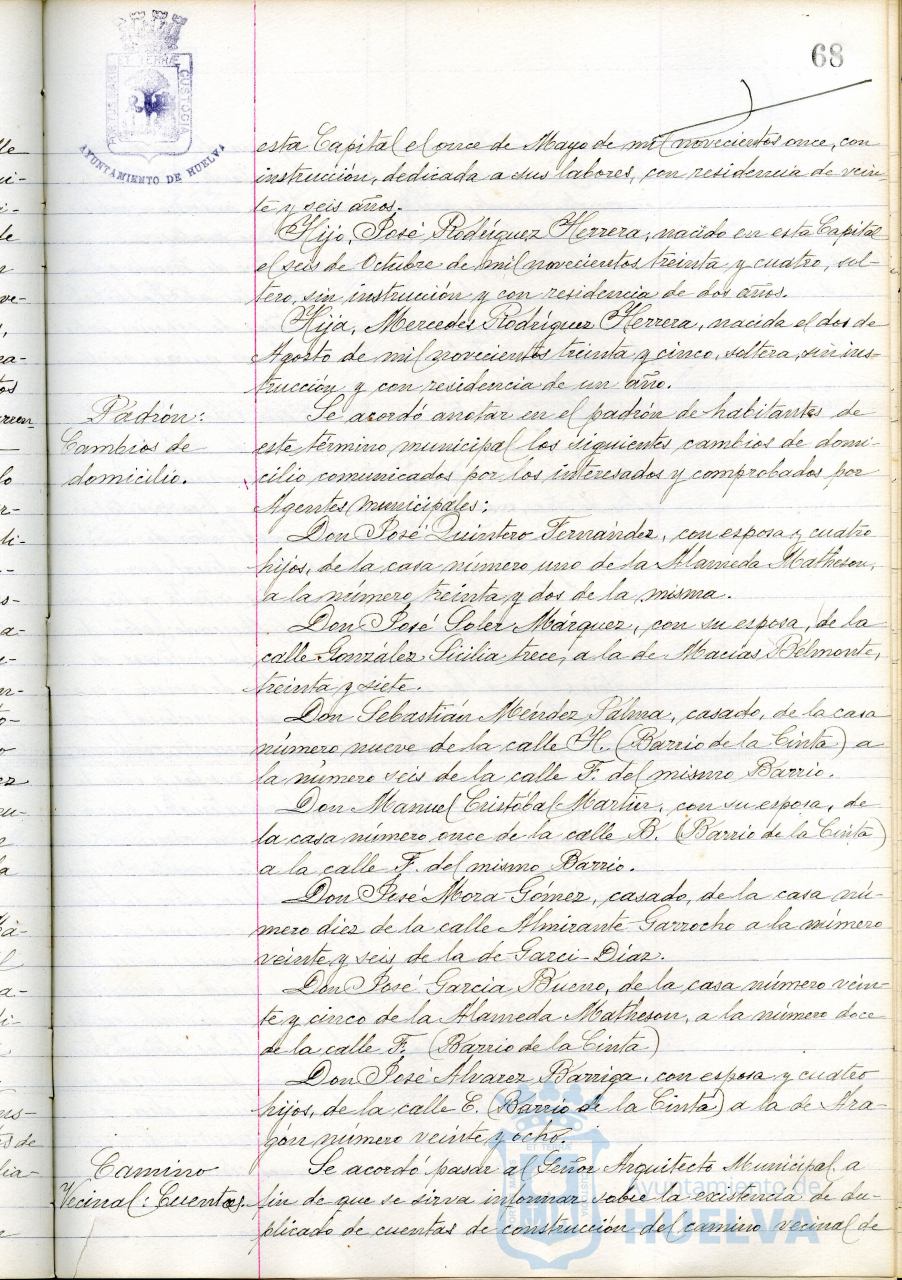 68
PORTUS MARIS ET TERRÆ CUSTODIA
AYUNTAMIENTO DE HUELVA
esta Capital el once de Mayo de mil novecientos once, con
instrucción, dedicada a sus labores, con residencia de vein
te y seis años.
Hijo, José Rodríguez Herrera, nacido en esta Capital
el seis de Octubre de mil novecientos treinta y cuatro, sol-
tero, sin instrucción y con residencia de dos años.
Hija, Mercedes Rodríguez Herrera, nacida el dos de
Agosto de mil novecientos treinta y cinco, soltera, sin ins-
trucción y con residencia de un año.
Padrón:
Cambios de
domicilio.
Se acordó anotar en el padrón de habitantes de
este término municipal los siguientes cambios de domi-
cilio comunicados por los interesados y comprobados por
Agentes municipales:
Don José Quintero Fernández, con esposa y cuatro
hijos, de la casa número uno de la Alameda Matheson,
a la número treinta y dos de la misma.
Don José Soler Márquez, con su esposa, de la
calle González Sicilia trece, a la de Macías Belmonte,
treinta y siete.
Don Sebastián Méndez Palma, casado, de la casa
número nueve de la calle H. (Barrio de la Cinta) a
la número seis de la calle F. del mismo Barrio.
Don Manuel Cristóbal Martín, con su esposa, de
la casa número once de la calle B. (Barrio de la Cinta)
a la calle F. del mismo Barrio.
Don José Mora Gómez, casado, de la casa nú-
mero diez de la calle Almirante Garrocho a la número
veinte y seis de la de Garci-Díaz.
Don José García Bueno, de la casa número vein-
te y cinco de la Alameda Matheson, a la número doce
de la calle F. (Barrio de la Cinta)
Don José Alvarez Barriga, con esposa y cuatro
hijos, de la calle E. (Barrio de la Cinta) a la de Ara-
gón número veinte y ocho.
Camino
Vecinal: Cuentas.
Se acordó pasar al Señor Arquitecto Municipal, a
fin de que se sirva informar sobre la existencia de du-
plicado de cuentas de construcción del camino vecinal de
Ayuntamiento de
HUELVA